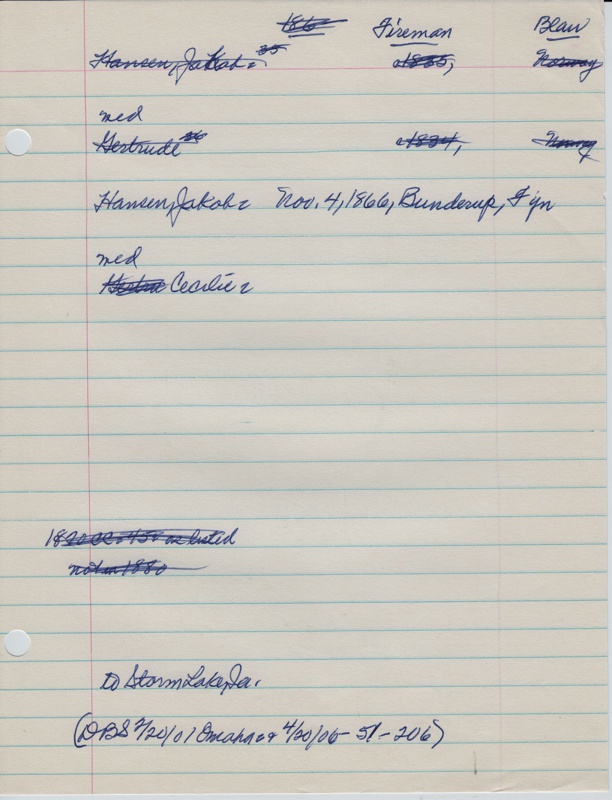 1860 Fireman Blair
Hansen, Jakob: 35 c1835, Norway
med
Gertrude 36 c1834, Norway
Hansen, Jakob: Nov. 4, 1866, Bunderup, Fyn
med
Cecilie:
as listed
not in 1880
to Storm Lake, Ia.
(DBS 2/20/01 Omaha 4/20/06-51-206)